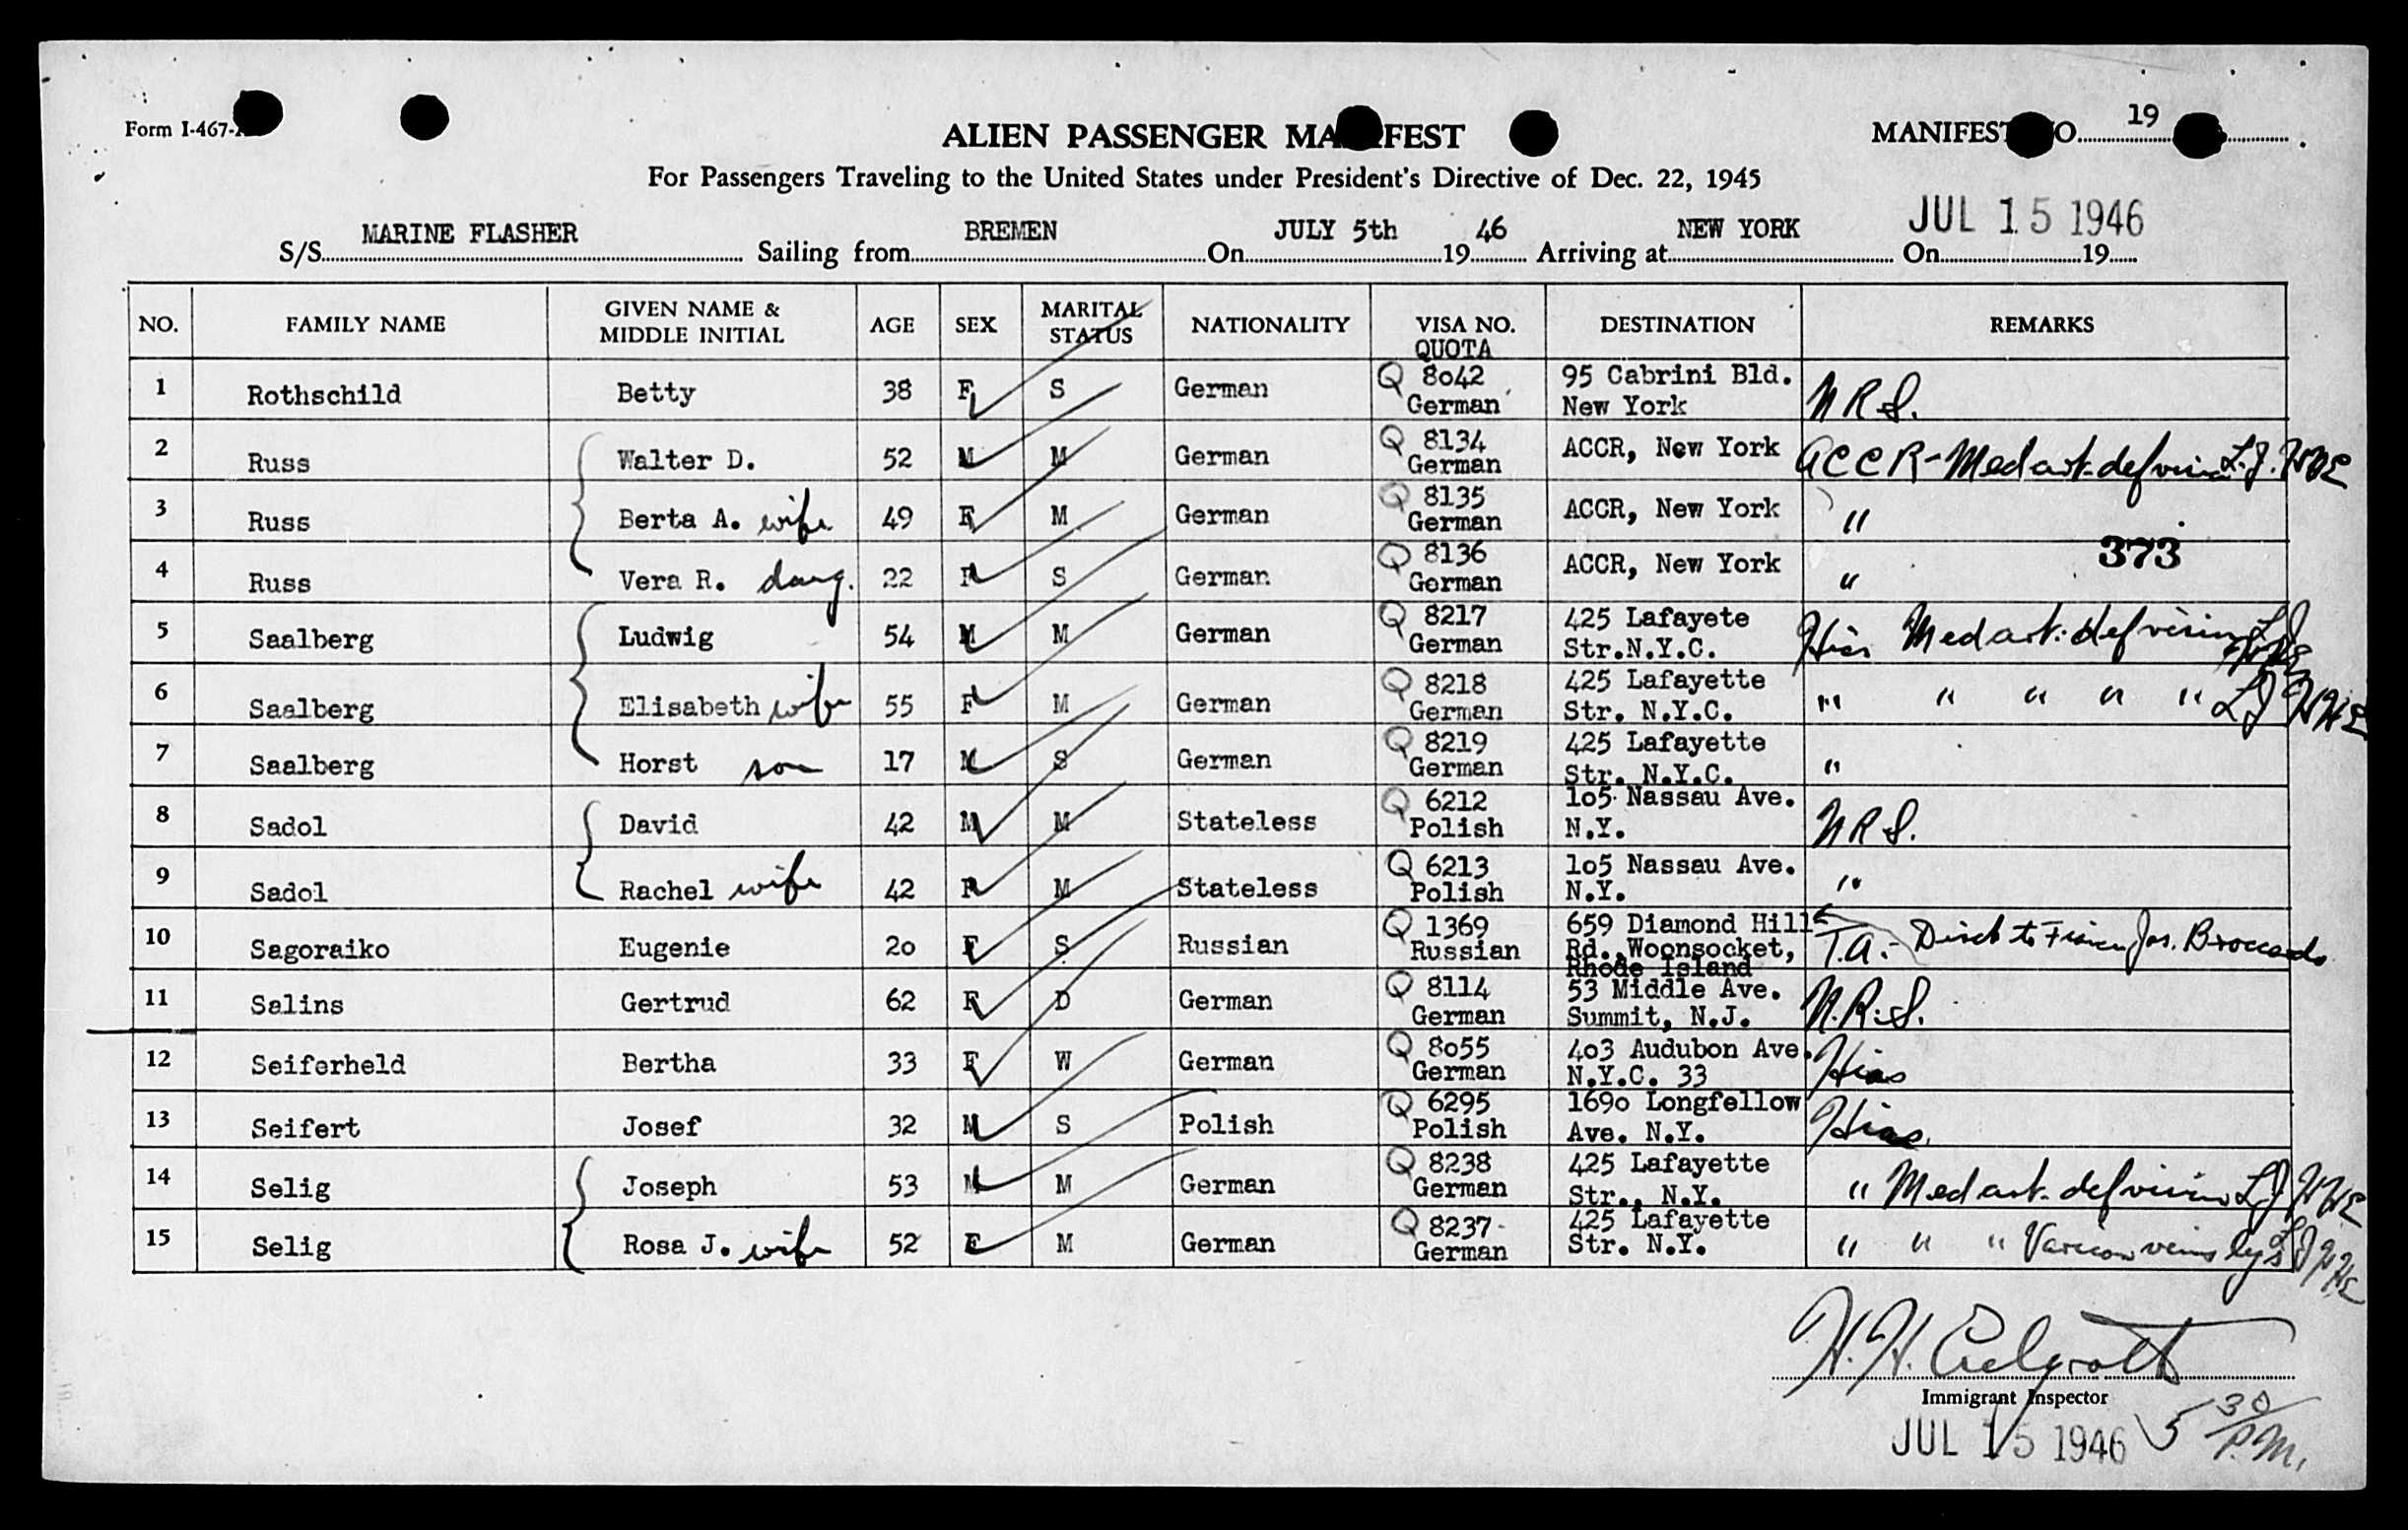 Form I-467-
ALIEN PASSENGER MANIFEST
MANIFEST NO. 19
For Passengers Traveling to the United States under President's Directive of Dec. 22, 1945
S/S MARINE FLASHER Sailing from BREMEN On JULY 5th 19 46 Arriving at NEW YORK On JUL 15 1946 19
NO. FAMILY NAME GIVEN NAME & MIDDLE INITIAL AGE SEX MARITAL STATUS NATIONALITY VISA NO. QUOTA DESTINATION REMARKS
1 Rothschild Betty 38 F S German Q 8042 German 95 Cabrini Bld. New York N R S.
2 Russ Walter D. 52 M M German Q 8134 German ACCR, New York ACCR - Med cert. def vision L.J.
3 Russ Berta A. wife 49 F M German Q 8135 German ACCR, New York "
373
4 Russ Vera R. daug. 22 F S German Q 8136 German ACCR, New York "
5 Saalberg Ludwig 54 M M German Q 8217 German 425 Lafayete Str.N.Y.C. Hias Med cert. def vision
6 Saalberg Elisabeth wife 55 F M German Q 8218 German 425 Lafayette Str. N.Y.C. " " " " " LJ
7 Saalberg Horst son 17 M S German Q 8219 German 425 Lafayette Str. N.Y.C. "
8 Sadol David 42 M M Stateless Q 6212 Polish 105 Nassau Ave. N.Y. N R S.
9 Sadol Rachel wife 42 F M Stateless Q 6213 Polish 105 Nassau Ave. N.Y. "
10 Sagoraiko Eugenie 20 F S Russian Q 1369 Russian 659 Diamond Hill Rd.,Woonsocket, Rhode Island T.A. - Disch to Jos.
11 Salins Gertrud 62 F D German Q 8114 German 53 Middle Ave. Summit, N.J. N.R.S.
12 Seiferheld Bertha 33 F W German Q 8055 German 403 Audubon Ave. N.Y.C. 33 Hias
13 Seifert Josef 32 M S Polish Q 6295 Polish 1690 Longfellow Ave. N.Y. Hias
14 Selig Joseph 53 M M German Q 8238 German 425 Lafayette Str., N.Y. " Med cert. def vision LJ
15 Selig Rosa J. wife 52 F M German Q 8237 German 425 Lafayette Str. N.Y. " " " Varicose veins legs
H. H.
Immigrant Inspector
JUL 15 1946 5 30 P.M.